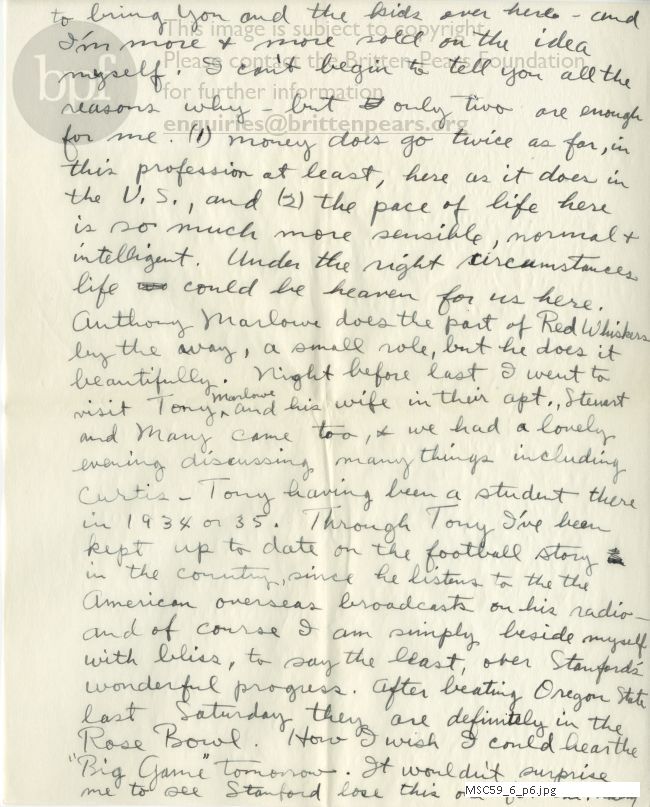 to bring you and the kids over here - and
I'm more & more sold on the idea
myself. I can't begin to tell you all the
reasons why - but only two are enough
for me. (1) money does go twice as far, in
this profession at least, here as it does in
the U.S., and (2) the pace of life here
is so much more sensible, normal &
intelligent. Under the right circumstances
life could be heaven for us here.
Anthony Marlowe does the part of Red Whiskers
by the way, a small role, but he does it
beautifully. Night before last I went to
visit Tony Marlowe and his wife in their apt., Stewart
and Mary came too, & we had a lovely
evening discussing many things including
Curtis - Tony having been a student there
in 1934 or 35. Through Tony I've been
kept up to date on the football story
in the country, since he listens to the the
American overseas broadcasts on his radio -
and of course I am simply beside myself
with bliss, to say the least, over Stanford's
wonderful progress. After beating Oregon State
last Saturday they are definitely in the
Rose Bowl. How I wish I could hear the
"Big Game" tomorrow. It wouldn't surprise
me to see Stanford lose this
bpf
This image is subject to copyright.
Please contact the Britten-Pears Foundation
for further information
enquiries@brittenpears.org
MSC59_6_p6.jpg